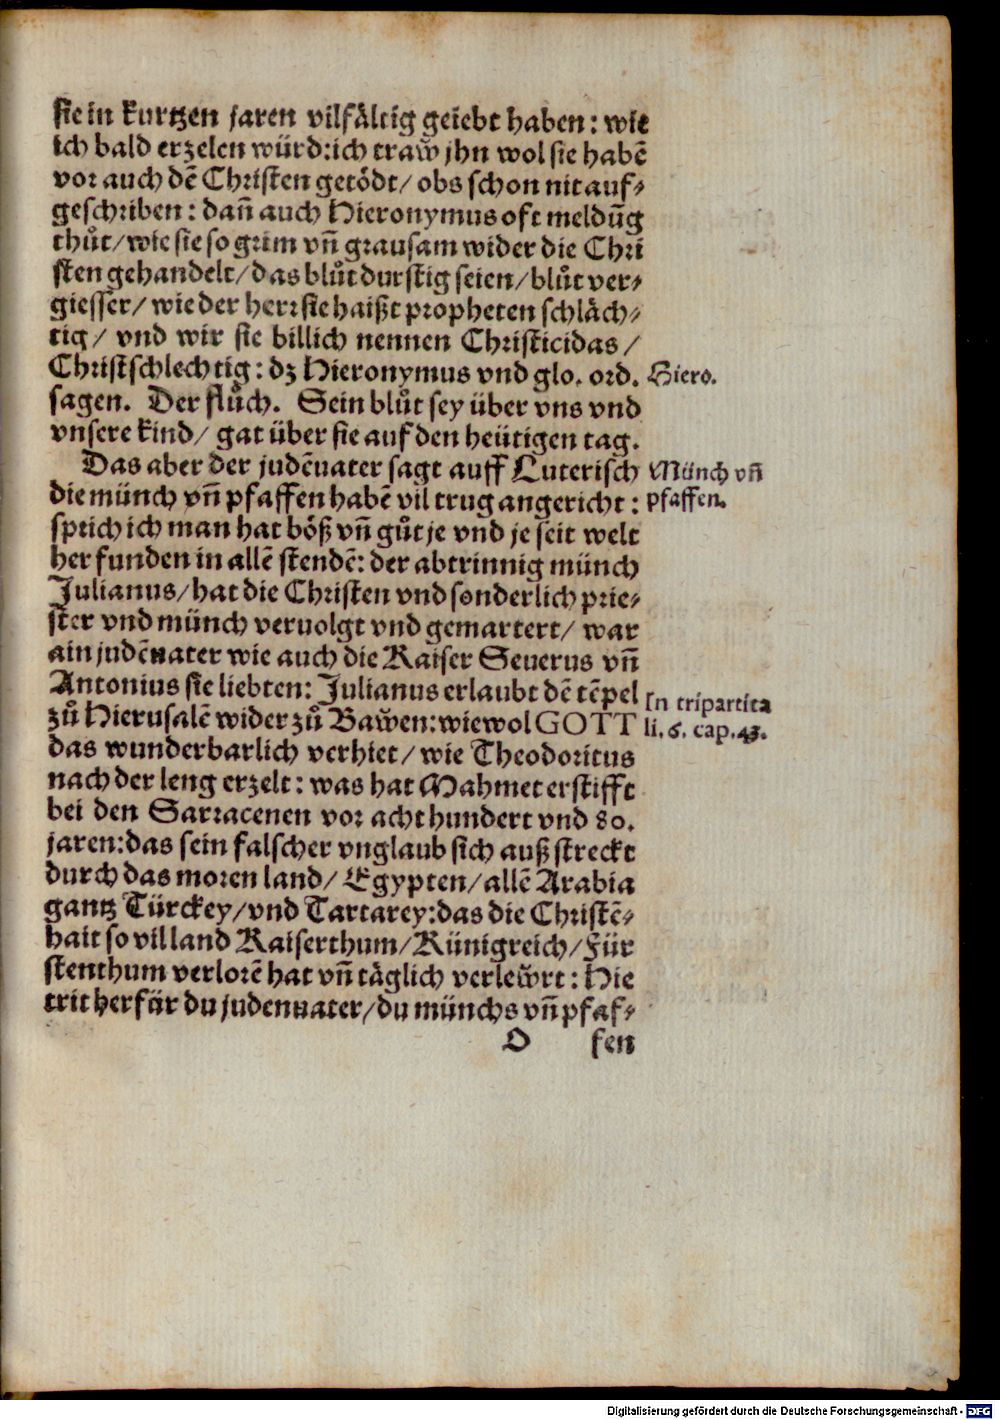 sie in kurtzen jaren vilfältig geiebt haben: wie
ich bald erzelen würd: ich traw̌ jhn wol sie habē
vor auch dē Christen getödt/ obs schon nit auf⸗
geschriben: dañ auch Hieronymus oft meldūg
thůt/ wie sie so grim vñ grausam wider die Chri
sten gehandelt/ das blůtdurstig seien/ blůt ver⸗
giesser/ wie der herr sie haißt propheten schläch⸗
tig/ vnd wir sie billich nennen Christicidas/
Christschlechtig: dz Hieronymus vnd glo. ord.
Hiero.
sagen. Der flůch. Sein blůt sey über vns vnd
vnsere kind/ gat über sie auf den heütigen tag.
Das aber der judēuater sagt auff Luterisch
Münch vñ
die münch vñ pfaffen habē vil trug angericht:
pfaffen.
sprich ich man hat böß vñ gůt je vnd je seit welt
her funden in allē stendē: der abtrinnig münch
Julianus/ hat die Christen vnd sonderlich prie⸗
ster vnd münch veruolgt vnd gemartert/ war
ain judēuater wie auch die Kaiser Seuerus vñ
Antonius sie liebten: Julianus erlaubt dē tēpel
In tripartita
zů Hierusalē wider zů Baw̌en: wiewol GOTT
li. 6. cap. 43.
das wunderbarlich verhiet/ wie Theodoritus
nach der leng erzelt: was hat Mahmet erstifft
bei den Sarracenen vor acht hundert vnd 80.
jaren: das sein falscher vnglaub sich auß streckt
durch das moren land/ Egypten/ allē Arabia
gantz Türckey/ vnd Tartarey: das die Christē⸗
hait so vil land Kaiserthum/ Künigreich/ Für
stenthum verlorē hat vñ täglich verlew̌rt: Hie
trit herfür du judenuater/ du münchs vñ pfaf⸗
O fen
Digitalisierung gefördert durch die Deutsche Forschungsgemeinschaft - DFG